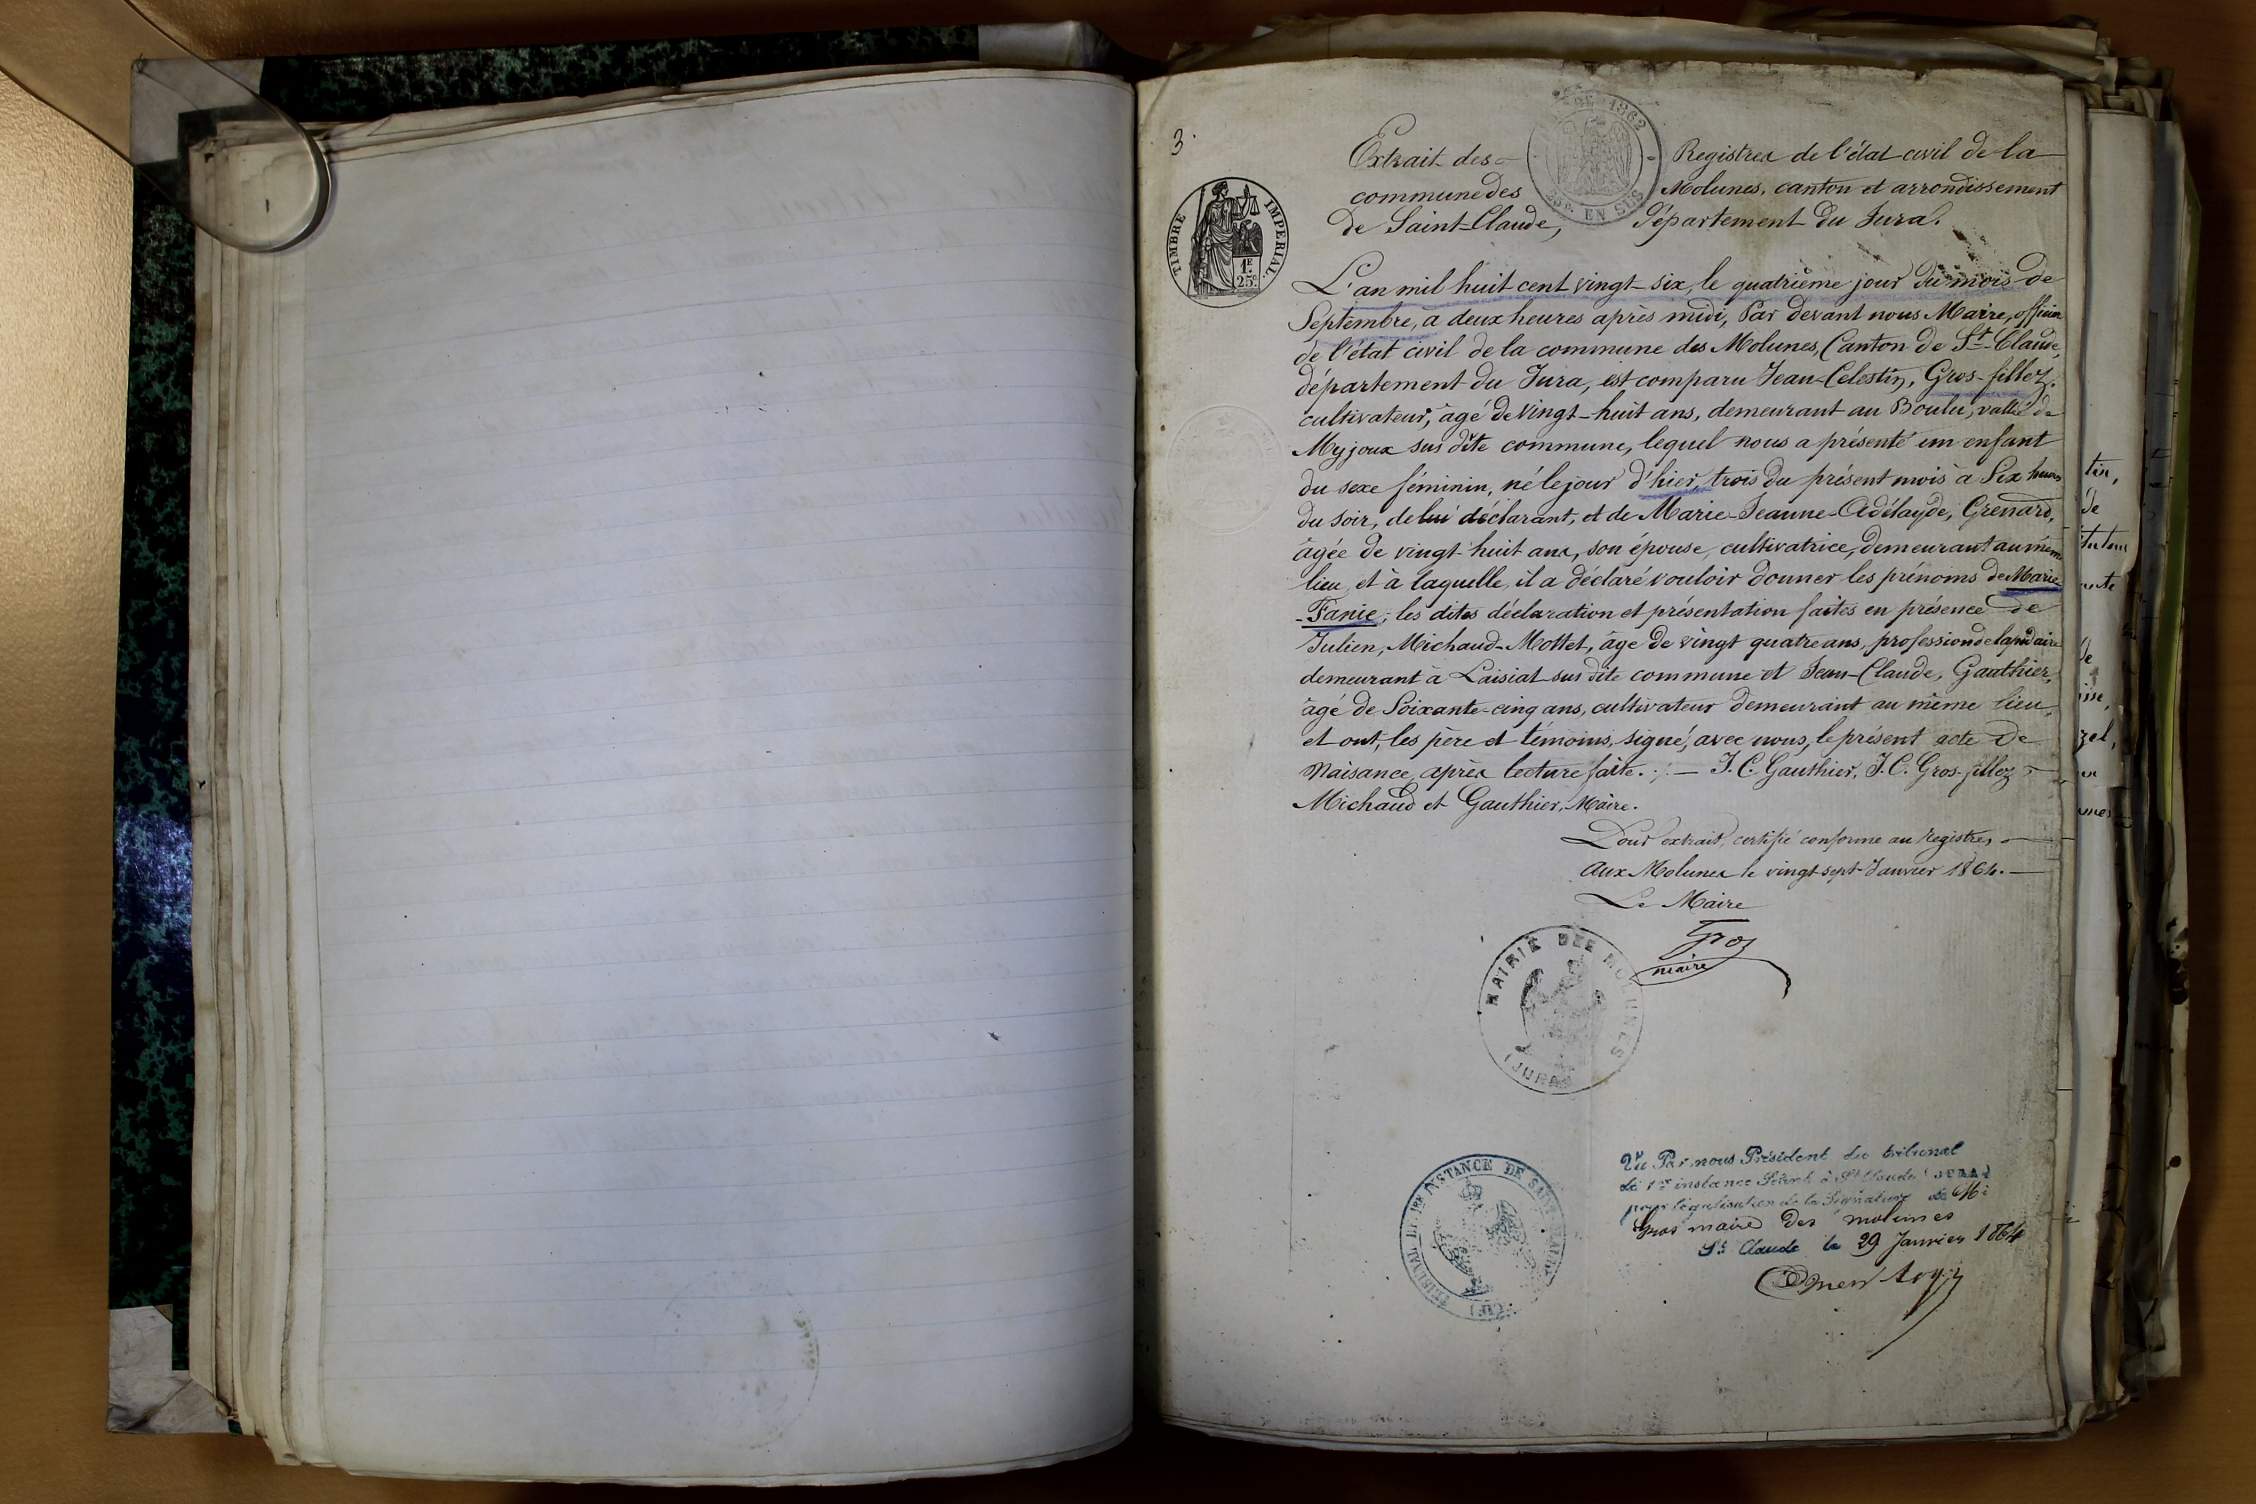 3.
Extrait des Registres de l'état civil de la
commune des Molunes, canton et arrondissement
de Saint-Claude, Département du Jura.
1862
25c. EN SUS
TIMBRE IMPERIAL.
1F
25c
L'an mil huit cent vingt-six, le quatrième jour du mois de
Septembre, à deux heures après midi, Par devant nous Maire, officier
de l'état civil de la commune des Molunes, Canton de St-Claude,
département du Jura, est comparu Jean-Celestin, Gros-fillez.
cultivateur, âgé de vingt-huit ans, demeurant au Boulu, vallée de
Myjoux sus dite commune, lequel nous a présenté un enfant
du sexe féminin, né le jour d'hier, trois du présent mois à Six heures
du soir, de lui déclarant, et de Marie-Jeanne-Adélayde, Grenard,
âgée de vingt-huit ans, son épouse, cultivatrice, demeurant au même
lieu, et à laquelle il a déclaré vouloir donner les prénoms de Marie
-Fanie; les dites déclaration et présentation faites en présence de
Julien, Michaud-Mottet, âgé de vingt quatre ans, profession de lapidaire
demeurant à Laisiat sus dite commune et Jean-Claude, Gauthier,
âgé de Soixante-cinq ans, cultivateur demeurant au même lieu,
et ont, les père et témoins, signé, avec nous, le présent acte de
Naisance, après lecture faite. ./. — J.C. Gauthier, J.C. Gros-fillez
Michaud et Gauthier, Maire.
Pour extrait, certifié conforme au Registre,
Aux Molunes le vingt-sept Janvier 1864.
Le Maire
Gros
maire
MAIRIE DES MOLUNES
(JURA)
TRIBUNAL DE 1RE INSTANCE DE SAINT CLAUDE
(JURA)
Vu Par nous Président du tribunal
de 1re instance Séant à St Claude (JURA)
pour légalisation de la Signature de Mr
Gros maire des molunes
St Claude le 29 Janvier 1864
tin,
de
ise,
zel,